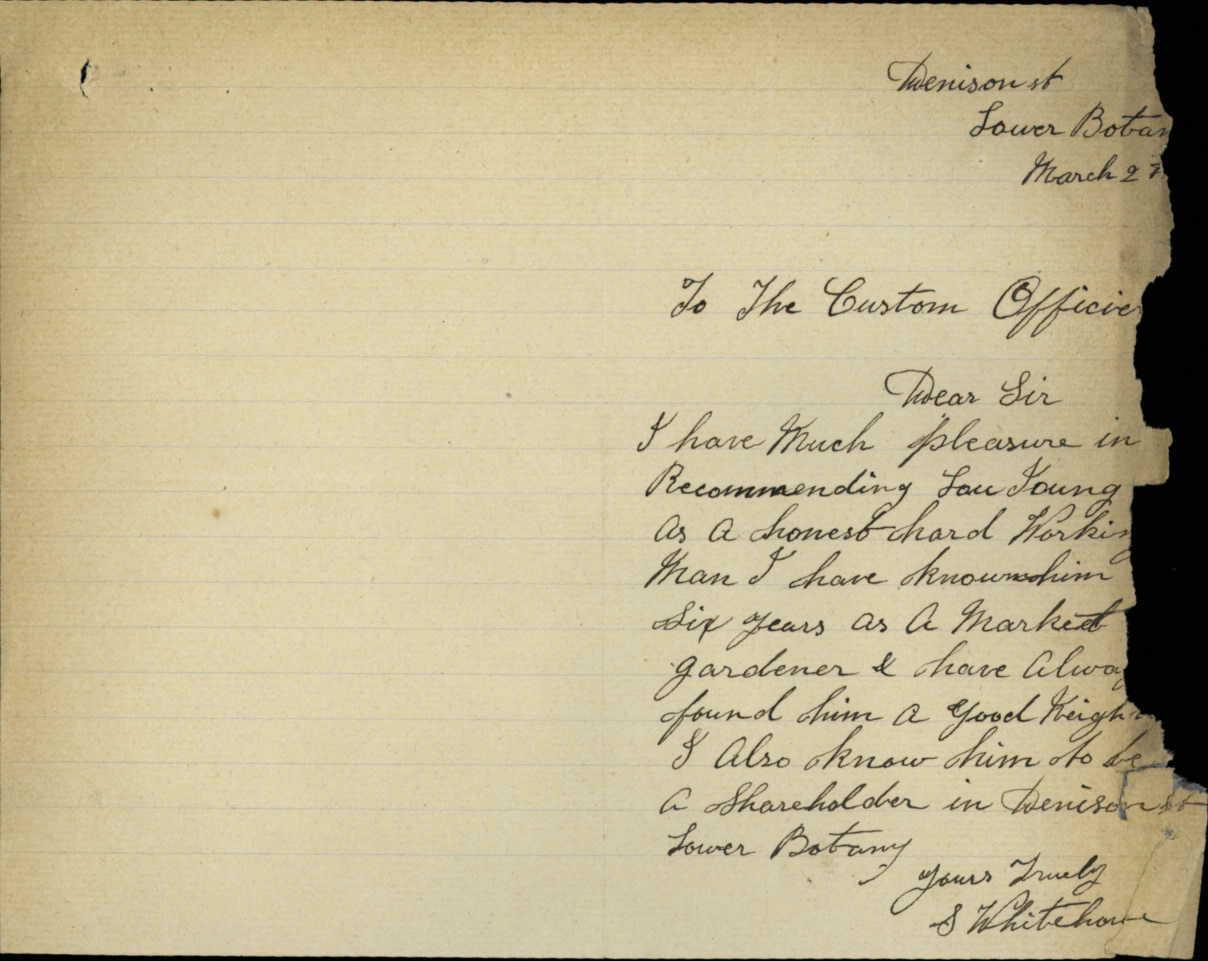 Denison st
Lower Botan
March 27
To The Custom Officie
Dear Sir
I have Much pleasure in
Recommending Lou Young
As A honest hard Workin
Man I have known him
Six years As A Market
gardener & have Alway
found him A good Neigh
I Also know him to be
A Shareholder in Denison st
Lower Botany
yours Truely
S Whitehouse